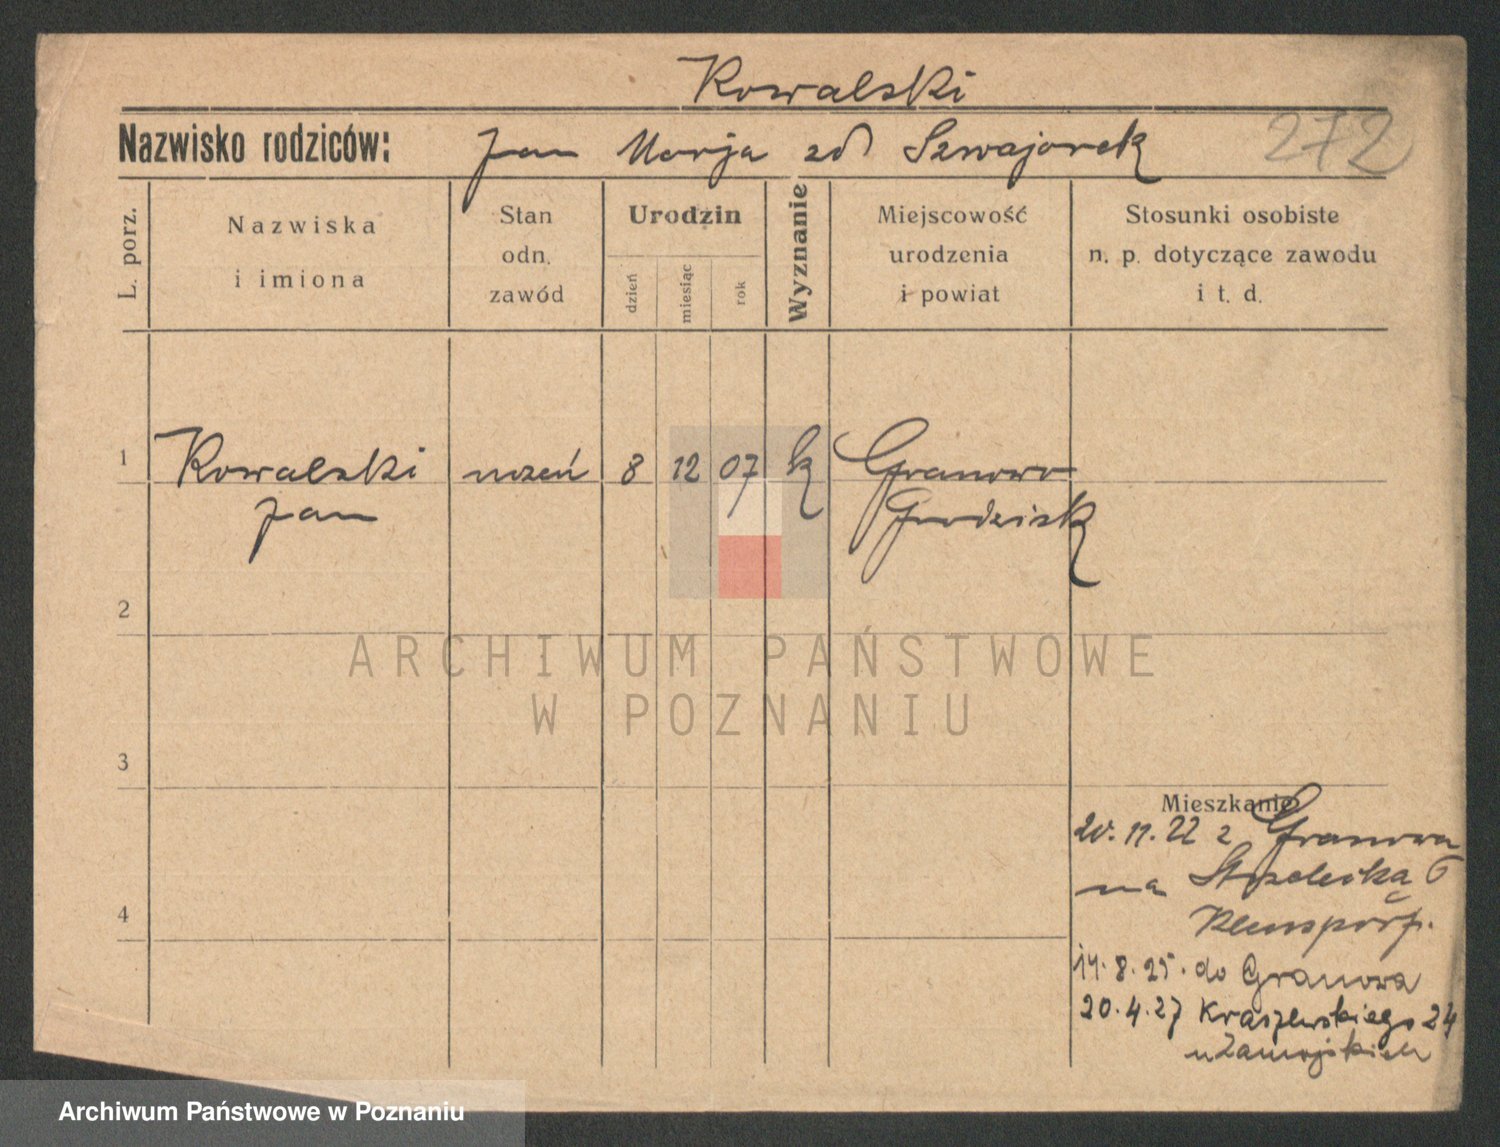 Kowalski
Nazwisko rodziców: Jan Marja zd Szwajorek
272
L. porz.
Nazwiska
i imiona
Stan
odn.
zawód
Urodzin
dzień
miesiąc
rok
Wyznanie
Miejscowość
urodzenia
i powiat
Stosunki osobiste
n. p. dotyczące zawodu
i t. d.
1 Kowalski uczeń 8 12 07 k Granowo
Jan Grodzisk
2
3
4
Mieszkanie
20.11.22 z Granowa
na Strzelecką 6
14.8.25. do Granowa
20.4.27 Kraszewskiego 24
u Zamojskich
ARCHIWUM PAŃSTWOWE
W POZNANIU
Archiwum Państwowe w Poznaniu